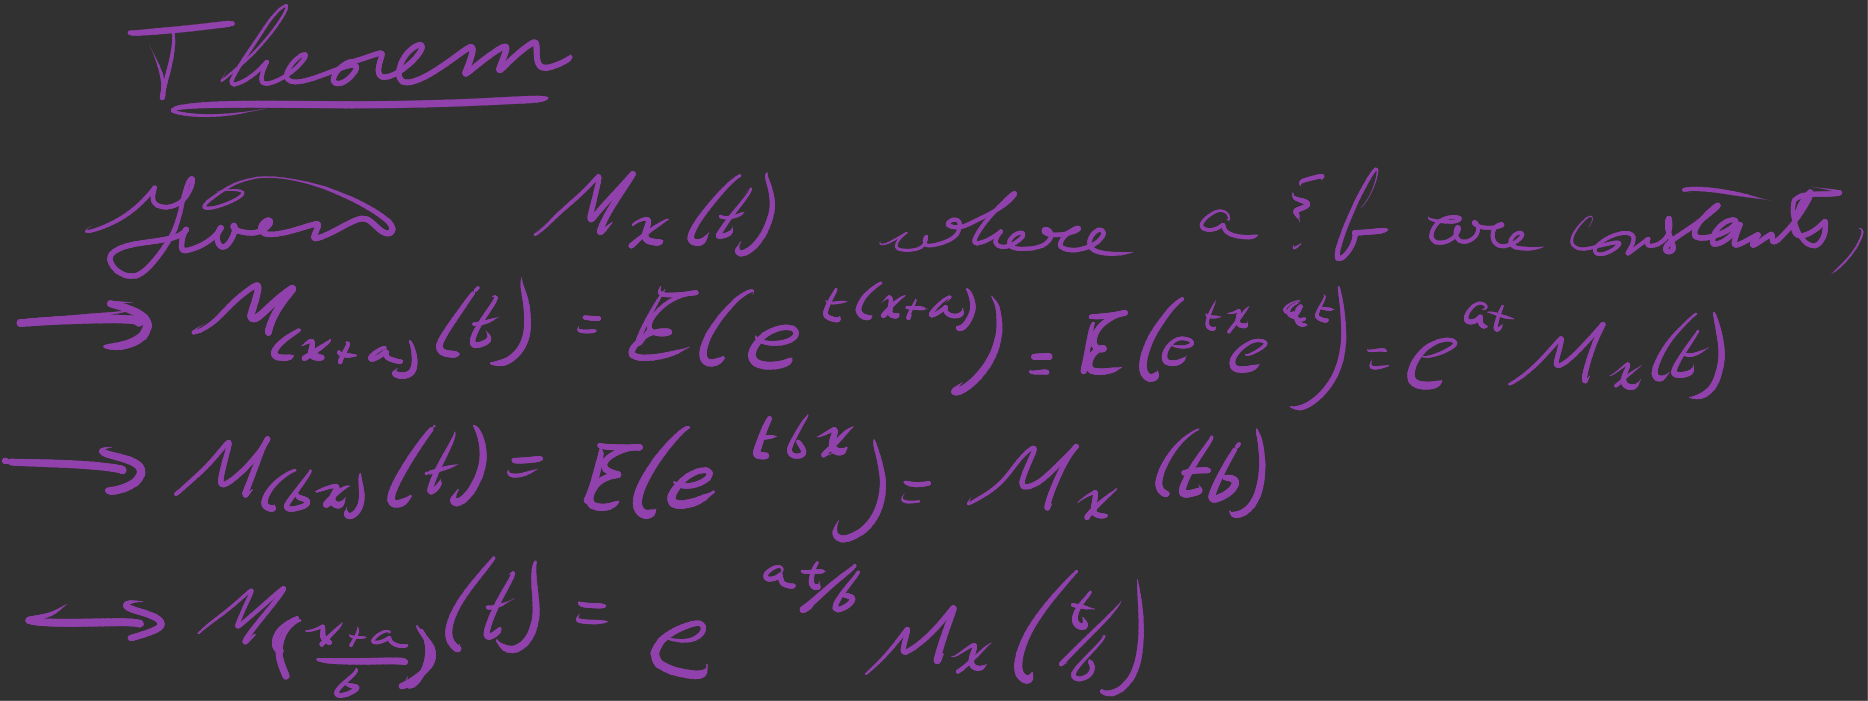 Theorem
Given M_x(t) where a & b are constants,
→ M_(x+a)(t) = E(e^{t(x+a)}) = E(e^{tx} e^{at}) = e^{at} M_x(t)
→ M_(bx)(t) = E(e^{tbx}) = M_x(tb)
→ M_((x+a)/b)(t) = e^{at/b} M_x(t/b)